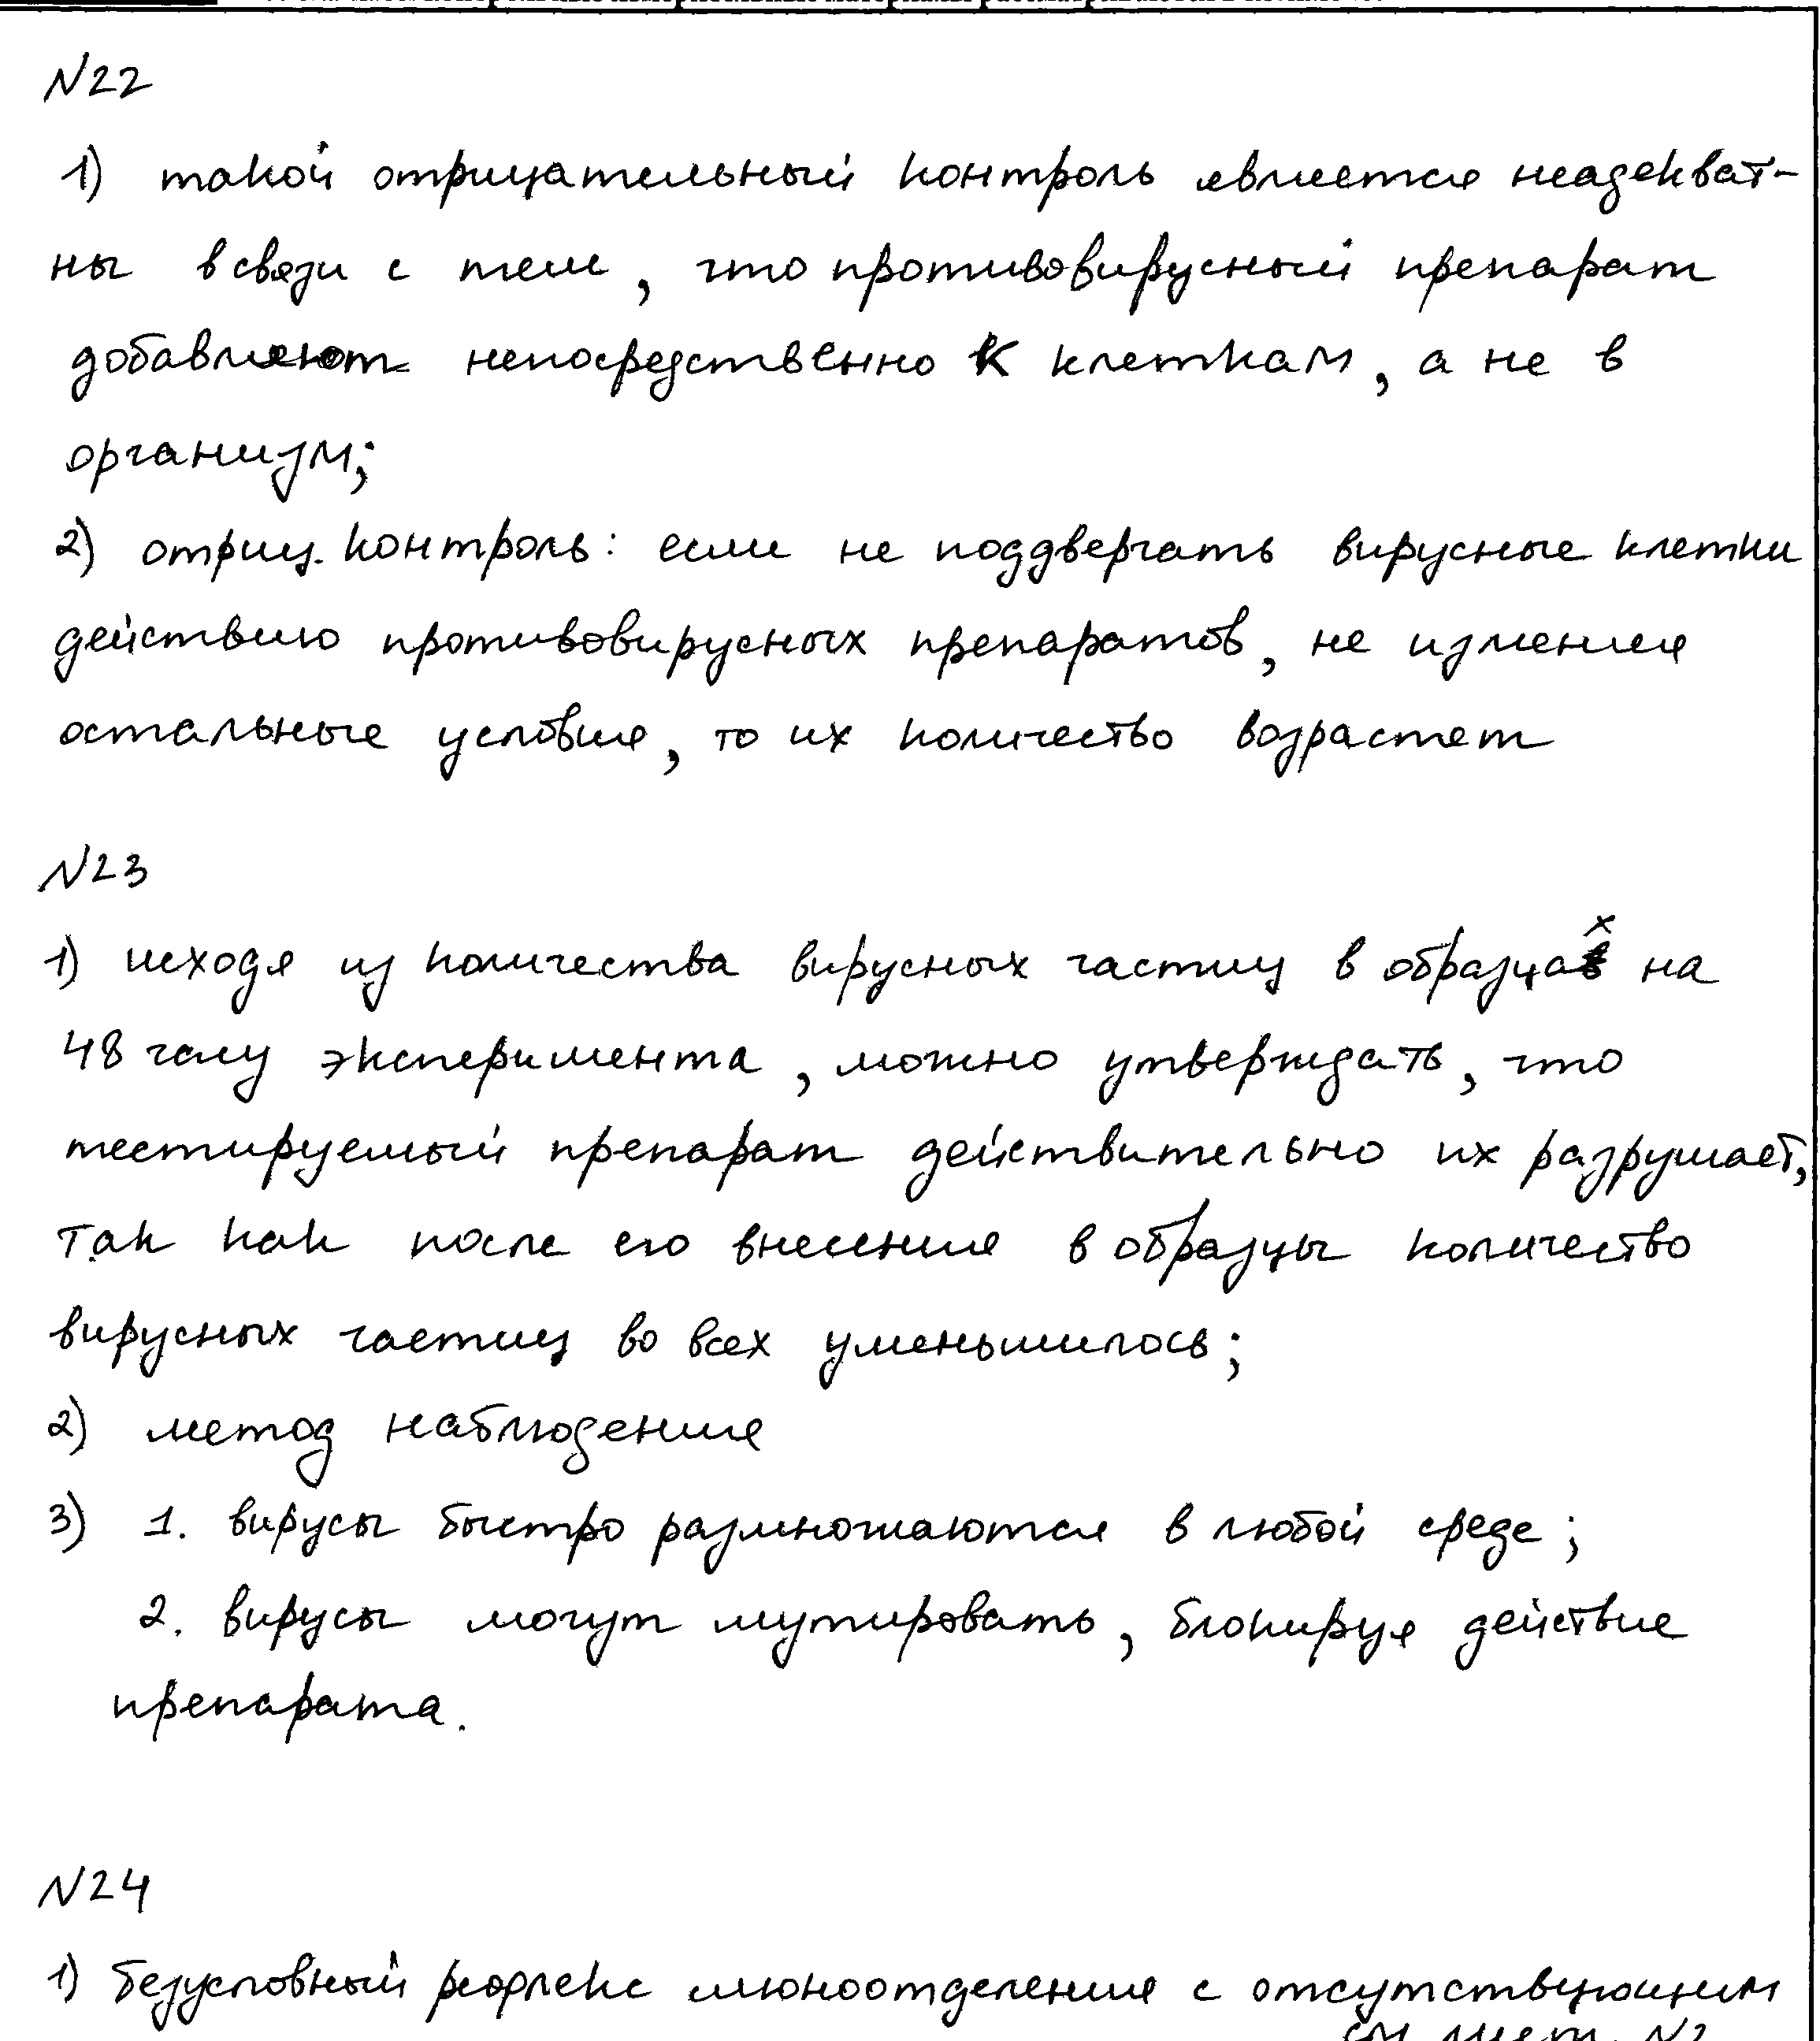 N22
1) такой отрицательный контроль является неадекват-
ны в связи с тем, что противовирусный препарат
добавляют непосредственно к клеткам, а не в
организм;
2) отриц. контроль: если не поддвергать вирусные клетки
действию противовирусных препаратов, не изменяя
остальные условия, то их количество возрастет
N23
1) исходя из количества вирусных частиц в образцах на
48 часу эксперимента, можно утверждать, что
тестируемый препарат действительно их разрушает,
так как после его внесения в образцы количество
вирусных частиц во всех уменьшилось;
2) метод наблюдения
3) 1. вирусы быстро размножаются в любой среде;
2. вирусы могут мутировать, блокируя действие
препарата.
N24
1) безусловный рефлекс слюноотделения с отсутствующим